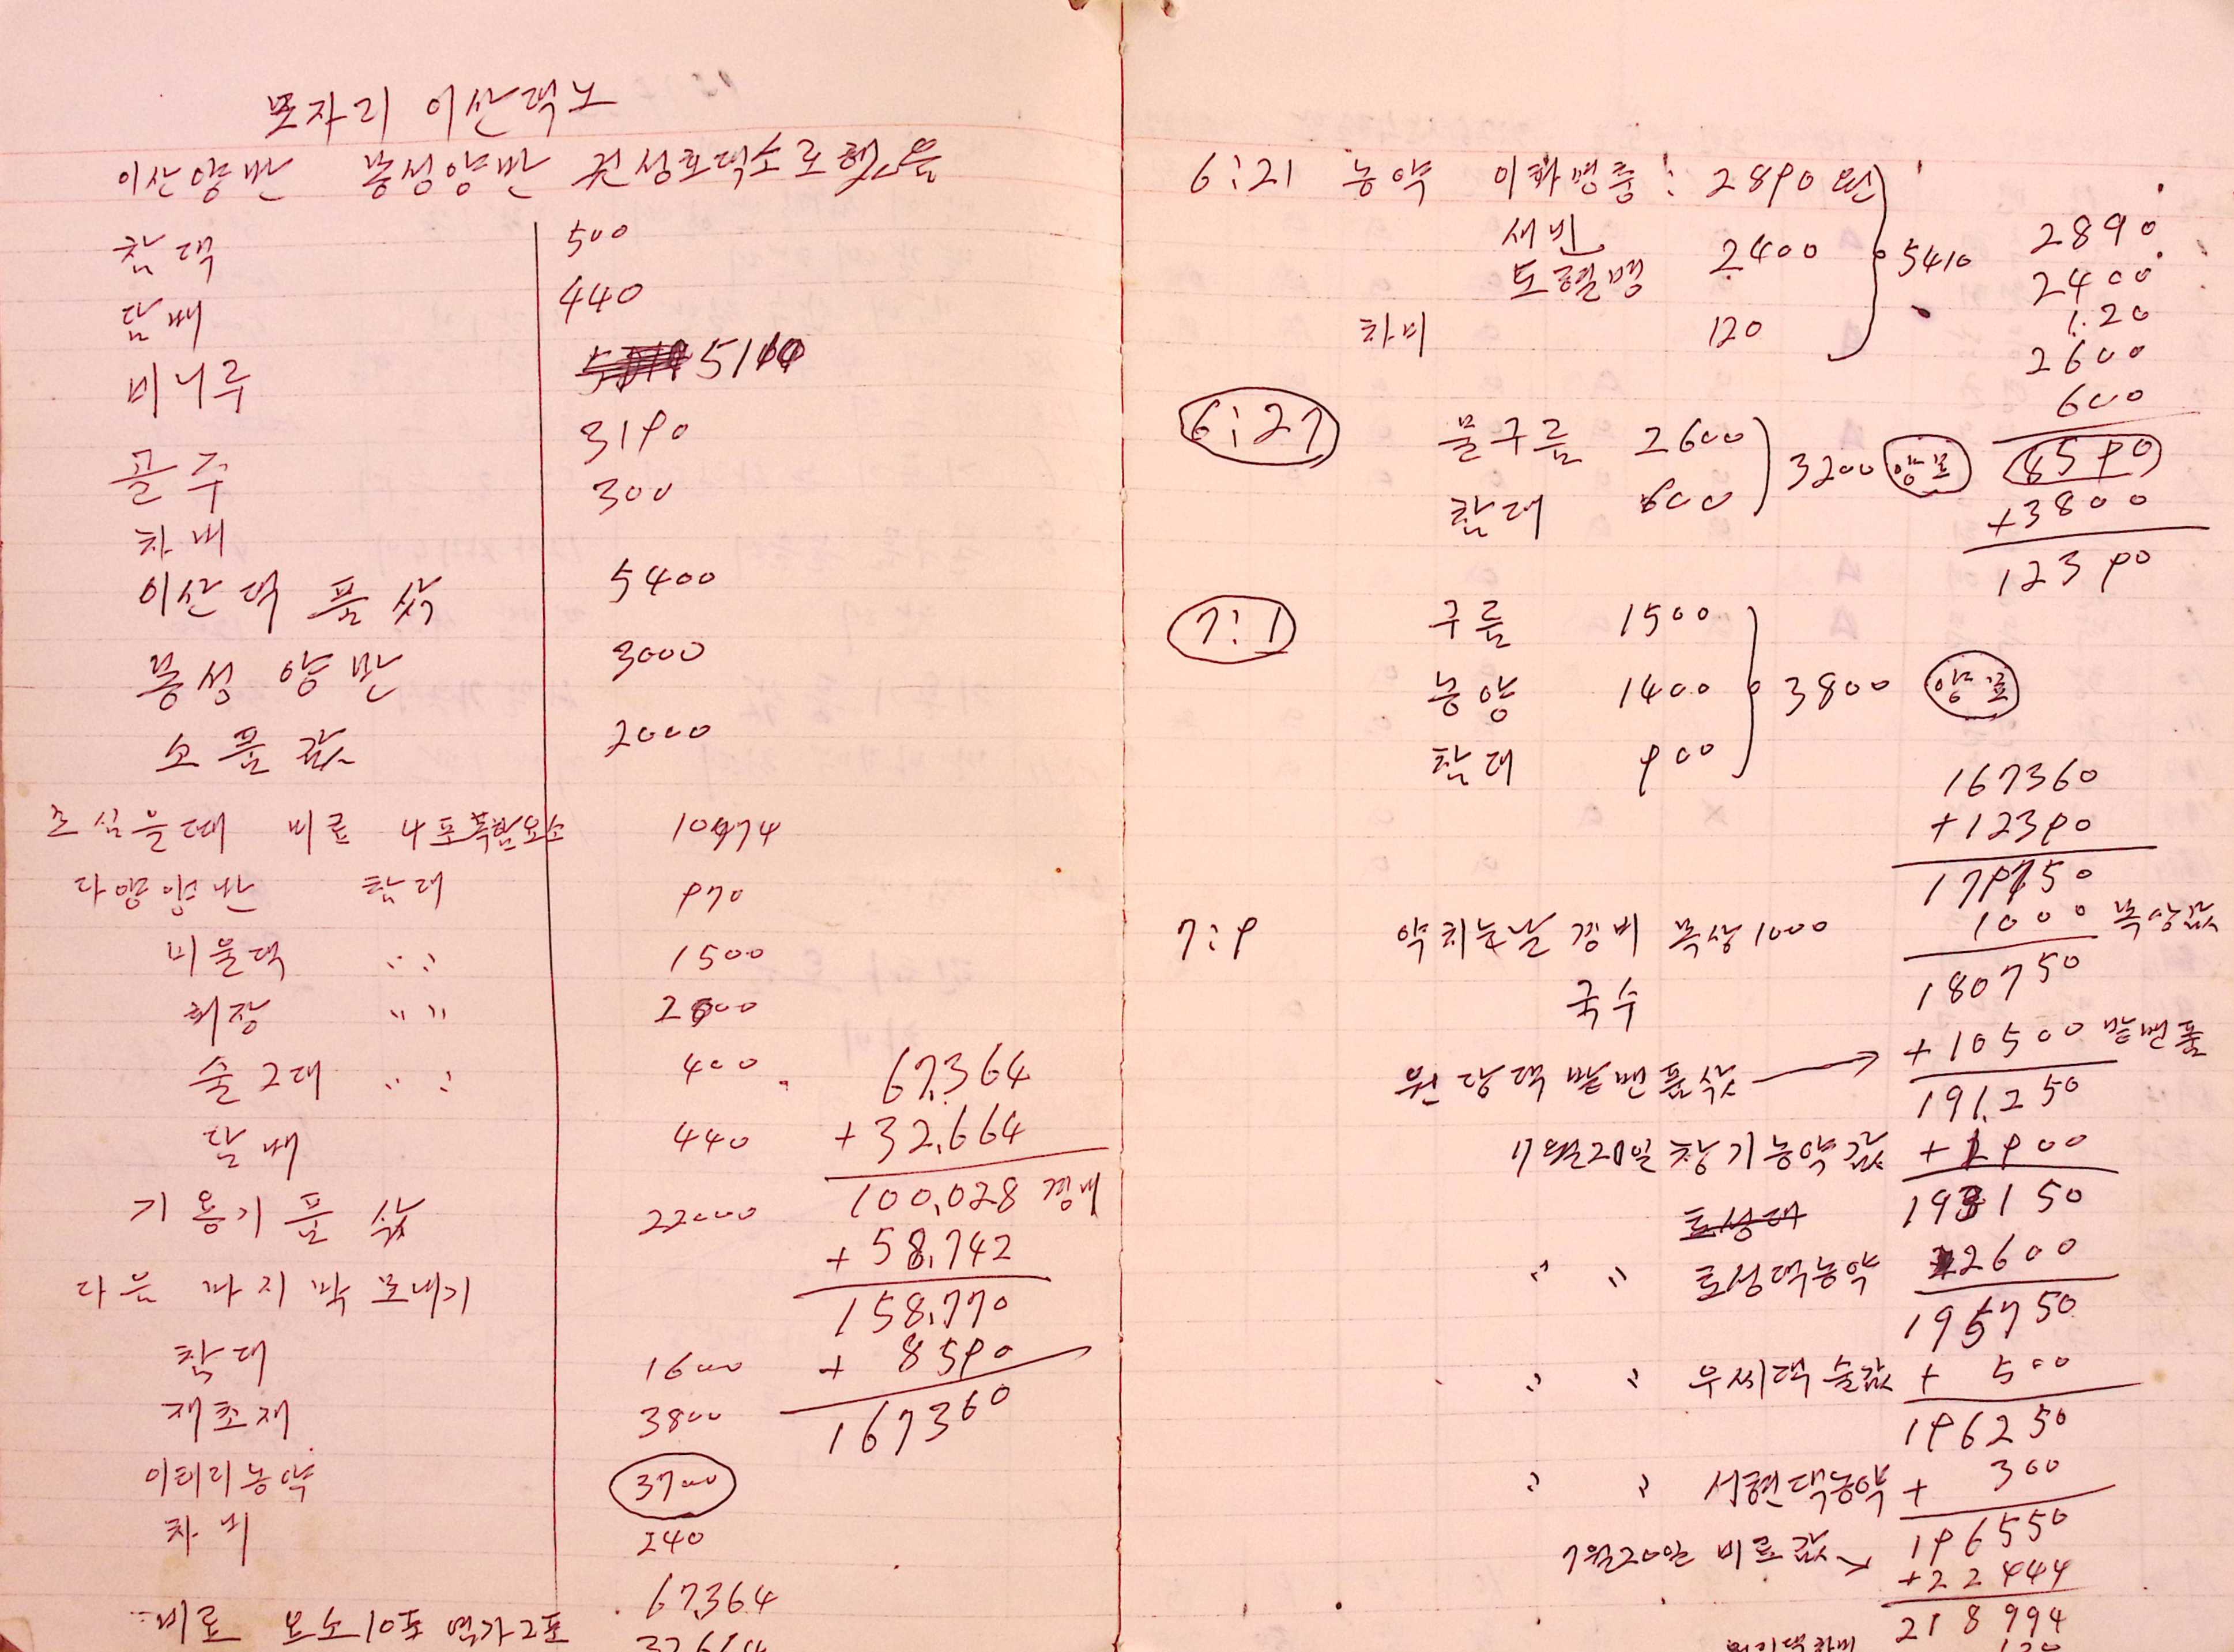 모자리 이산댁노
이산양반 풍성양반 권성호댁소로했음
참댁 500
담배 440
비니루 5100
골주 3190
차비 300
이산댁 품삯 5400
풍성 양반 3000
소품값 2000
모심을때 비료 4포복합요소 10474
다양양반 참대 970
비울댁 〃 1500
회장 〃 2000
술2대 〃 400
담배 440
기용기품삯 22000
다음 마지막 모내기
참대 1600
재초재 3800
이테리농약 3700
차비 240
67,364
비료 요소10포 염가2포
67,364
+ 32,664
100,028 경비
+ 58,742
158,770
+ 8590
167360
6:21 농약 이화명충: 2890원
새빈 2400
도열병
차비 120
5410
6:27 물구름 2600
참대 600
3200 양표
7:1 구름 1500
농약 1400
참대 900
3800 양표
7:9 약치는날 경비 복상1000
국수
원당댁 밭맨품삯 →
7월20일 창기농약값
토성대
〃 〃 토성댁농약
〃 〃 우씨댁 술값
〃 〃 서현댁농약
7월20일 비료값 →
2890
2400
1.20
2600
600
8590
+3800
12390
167360
+12390
179750
1000 복상값
180750
+10500 밭맨품
191.250
+1900
193150
2600
195750
+ 500
196250
+ 300
196550
+22444
218994